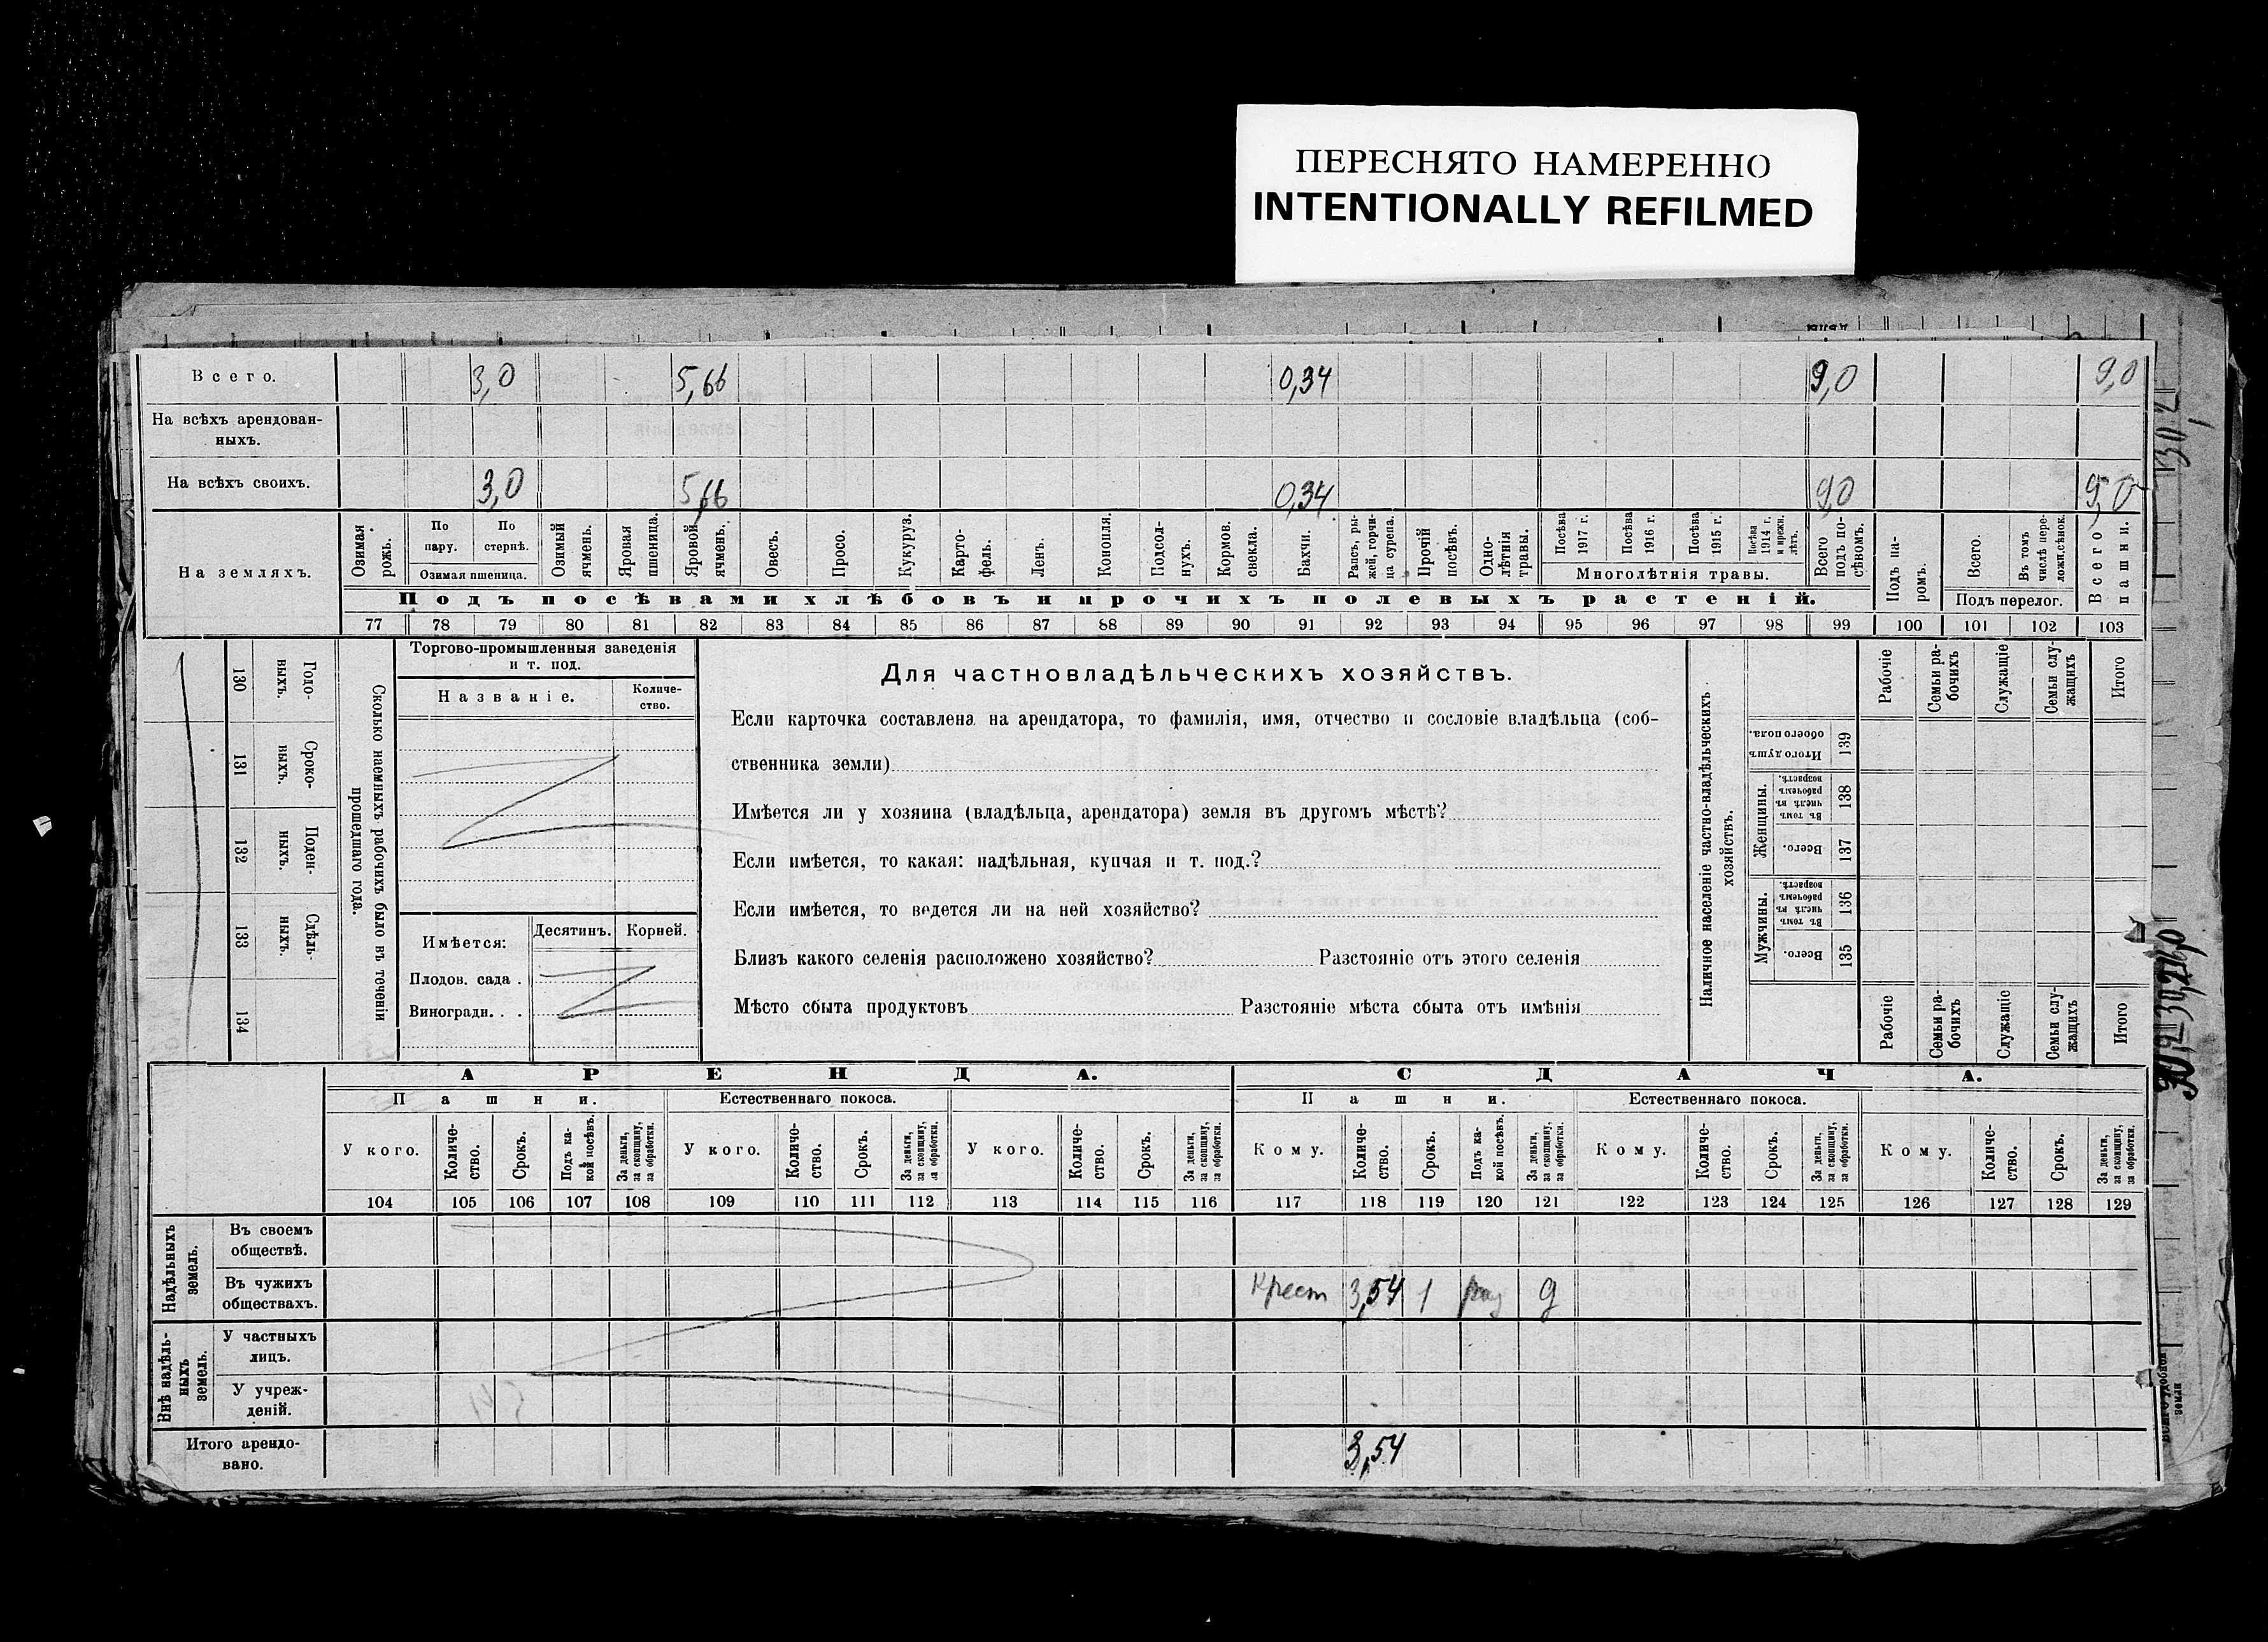 ПЕРЕСНЯТО НАМЕРЕННО
INTENTIONALLY REFILMED
Всего. 3,0 5,66 0,34 9,0 9,0
На всѣхъ арендован-
ныхъ.
На всѣхъ своихъ. 3,0 5,66 0,34 9,0 9,0
На земляхъ.
Озимая рожь.
По пару.
По стернѣ.
Озимая пшеница.
Озимый ячмень.
Яровая пшеница.
Яровой ячмень.
Овесъ.
Просо.
Кукуруз.
Карто-
фель.
Ленъ.
Конопля.
Подсол-
нухъ.
Кормов. свекла.
Бахчи.
Рапсъ, ры-
жей, горчи-
ца сурепа.
Прочій посѣвъ.
Одно-
лѣтнія травы.
Посѣва 1917 г.
Посѣва 1916 г.
Посѣва 1915 г.
Посѣва 1914 г. и прежн. лѣтъ.
Многолѣтнія травы.
Всего подъ по-
сѣвомъ.
Подъ па-
ромъ.
Всего.
Въ томъ числѣ пере-
ложн.сѣнок.
Подъ перелог.
Всего пашни.
Подъ посѣвами хлѣбовъ и прочихъ полевыхъ растеній.
77 78 79 80 81 82 83 84 85 86 87 88 89 90 91 92 93 94 95 96 97 98 99 100 101 102 103
130 Годо-
выхъ.
131 Сроко-
выхъ.
132 Поден-
ныхъ.
133 Сдѣль-
ныхъ.
134
Сколько наемныхъ рабочихъ было въ теченіи
прошедшаго года.
Торгово-промышленныя заведенія
и т. под.
Названіе.
Количе-
ство.
Имѣется:
Десятинъ. Корней.
Плодов. сада .
Виноградн. . .
Для частновладѣльческихъ хозяйствъ.
Если карточка составлена на арендатора, то фамилія, имя, отчество и сословіе владѣльца (соб-
ственника земли)
Имѣется ли у хозяина (владѣльца, арендатора) земля въ другомъ мѣстѣ?
Если имѣется, то какая: надѣльная, купчая и т. под.?
Если имѣется, то ведется ли на ней хозяйство?
Близъ какого селенія расположено хозяйство? Разстояніе отъ этого селенія
Мѣсто сбыта продуктовъ Разстояніе мѣста сбыта отъ имѣнія
Наличное населеніе частно-владѣльческихъ
хозяйствъ.
Рабочіе
Семьи ра-
бочихъ
Служащіе
Семьи слу-
жащихъ
Итого
Итого душъ обоего пола. 139
Женщины.
Въ томъ числѣ въ рабочемъ возрастѣ. 138
Всего. 137
Мужчины.
Въ томъ числѣ въ рабочемъ возрастѣ. 136
Всего. 135
Рабочіе
Семьи ра-
бочихъ
Служащіе
Семьи слу-
жащихъ
Итого
АРЕНДА. СДАЧА.
Пашни. Естественнаго покоса. Пашни. Естественнаго покоса.
У кого.
Количе-
ство.
Срокъ.
Подъ ка-
кой посѣвъ.
За деньги, за скопщину, за обработки.
У кого.
Количе-
ство.
Срокъ.
За деньги, за скопщину, за обработки.
У кого.
Количе-
ство.
Срокъ.
За деньги, за скопщину, за обработки.
Кому.
Количе-
ство.
Срокъ.
Подъ ка-
кой посѣвъ.
За деньги, за скопщину, за обработки.
Кому.
Количе-
ство.
Срокъ.
За деньги, за скопщину, за обработки.
Кому.
Количе-
ство.
Срокъ.
За деньги, за скопщину, за обработки.
104 105 106 107 108 109 110 111 112 113 114 115 116 117 118 119 120 121 122 123 124 125 126 127 128 129
Надѣльныхъ
земель.
Въ своемъ
обществѣ.
Въ чужихъ
обществахъ. Крест 3,54 1 д
Внѣ надѣль-
ныхъ
земель.
У частныхъ
лицъ.
У учреж-
деній.
Итого арендо-
вано. 3,54